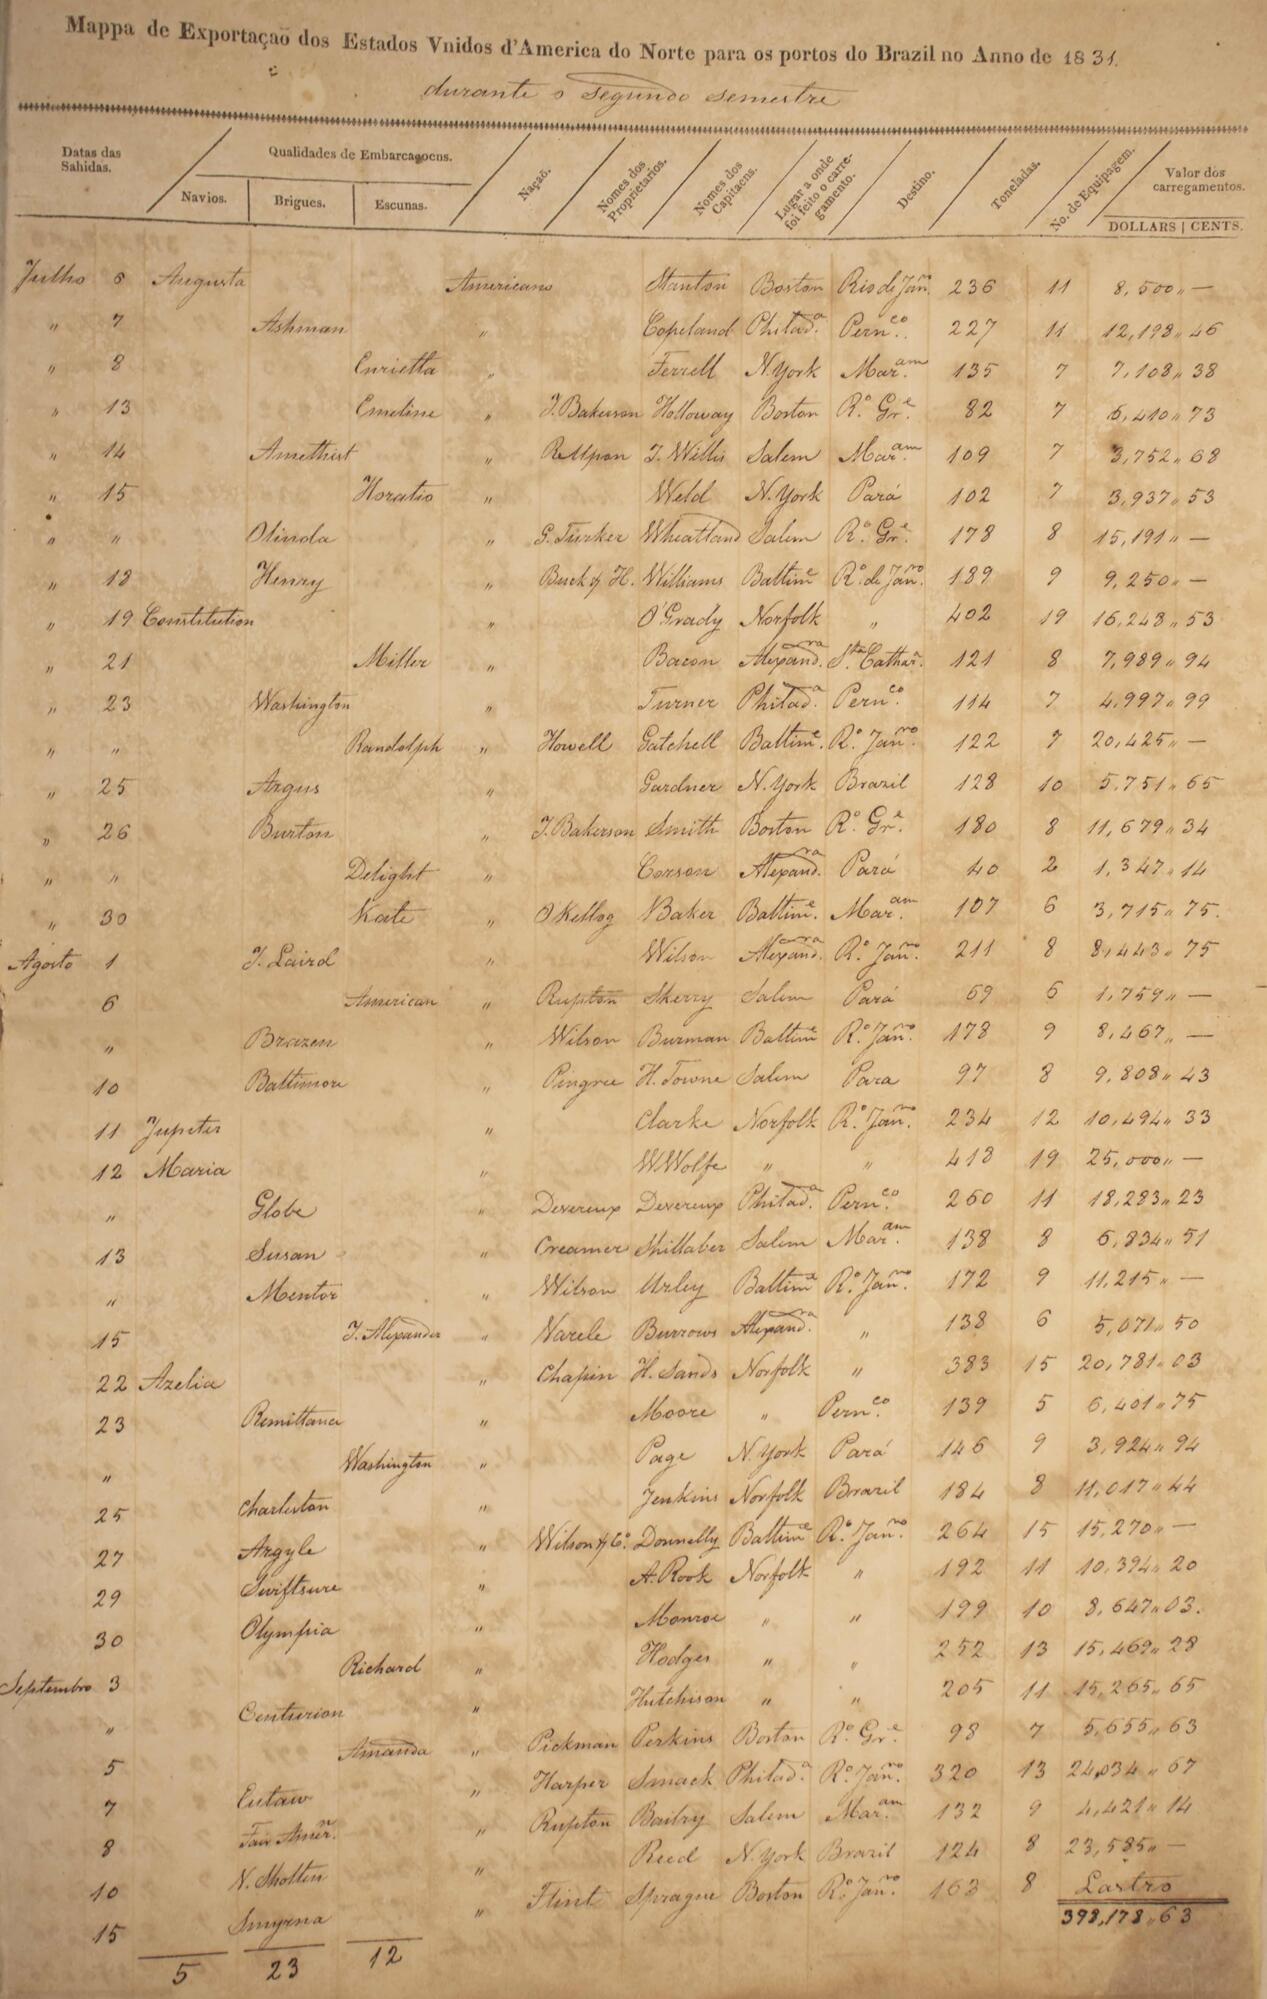 Mappa de Exportaçaõ dos Estados Vnidos d'America do Norte para os portos do Brazil no Anno de 1831.
durante o segundo semestre
Datas das Sahidas. Qualidades de Embarcaçoens. Navios. Brigues. Escunas. Nação. Nomes dos Proprietarios. Nomes dos Capitaens. Lugar a onde foi feito o carregamento. Destino. Toneladas. No. de Equipagem. Valor dos carregamentos. DOLLARS | CENTS.
Julho 6 Augusta Americano Stanton Boston Rio de Janro. 236 11 8,500 " —
" 7 Ashman " Copeland Philada. Pernco. 227 11 12,198 " 46
" 8 Enrietta " Ferrell N. York Maram. 135 7 7,108 " 38
" 13 Emeline " J. Bakerson Holloway Boston Ro. Gre. 82 7 6,410 " 73
" 14 Amethist " J. Willis Salem Maram. 109 7 3,752 " 68
" 15 Horatio " Weld N. York Pará 102 7 3,937 " 53
" " Olinda " G. Turker Wheatland Salem Ro. Gre. 178 8 15,191 " —
" 18 Henry " Buck & H. Williams Baltime Ro. de Janro. 189 9 9,250 " —
" 19 Constitution " O'Grady Norfolk " 402 19 16,248 " 53
" 21 Miller " Bacon Alexandra. Sta. Cathar. 121 8 7,989 " 94
" 23 Washington " Turner Philada. Pernco. 114 7 4,997 " 99
" " Randolph " Howell Gatchell Baltime. Ro. Janro. 122 7 20,425 " —
" 25 Argus " Gardner N. York Brazil 128 10 5,751 " 65
" 26 Burton " J. Bakerson Smith Boston Ro. Gre. 180 8 11,679 " 34
" " Delight " Corson Alexandra. Pará 40 2 1,347 " 14
" 30 Kate " O Kellog Baker Baltime. Maram. 107 6 3,715 " 75.
Agosto 1 J. Laird " Wilson Alexandra. Ro. Janro. 211 8 8,443 " 75
6 American " Rupton Skerry Salem Pará 69 6 1,759 " —
" Brazen " Wilson Burman Baltime Ro. Janro. 178 9 8,467 " —
10 Baltimore " Pingree H. Towne Salem Para 97 8 9,808 " 43
11 Jupeter " Clarke Norfolk Ro. Janro. 234 12 10,494 " 33
12 Maria " W Wolfe " " 418 19 25,000 " —
" Globe " Devereux Devereux Philada. Pernco. 260 11 18,283 " 23
13 Susan " Creamer Shillaber Salem Maram. 138 8 6,834 " 51
" Mentor " Wilson Urley Baltime Ro. Janro. 172 9 11,215 " —
15 J. Alexander " Varele Burrows Alexandra. " 138 6 5,071 " 50
22 Azelia " Chapin H. Sands Norfolk " 383 15 20,781 " 03
23 Remittance " Moore " Pernco. 139 5 6,401 " 75
" Washington " Page N. York Pará 146 9 3,924 " 94
25 Charleston " Jenkins Norfolk Brazil 184 8 11,017 " 44
27 Argyle " Wilson & Co. Donnelly Baltime Ro. Janro. 264 15 15,270 " —
29 Swiftsure " A. Rook Norfolk " 192 11 10,394 " 20
30 Olympia " Monroe " " 199 10 8,647 " 03.
Septembro 3 Richard " Hodges " " 252 13 15,469 " 28
" Centurion " Hutchison " " 205 11 15,265 " 65
5 Amanda " Pickman Perkins Boston Ro. Gre. 98 7 5,655 " 63
7 Eutaw " Harper Smack Philada. Ro. Janro. 320 13 24,034 " 67
8 Fair Amern. " Rupton Bailry Salem Maram. 132 9 4,421 " 14
10 N. Sholten " Reed N. York Brazil 124 8 23,585 " —
15 Smyrna " Flint Sprague Boston Ro. Janro. 163 8 Lastro
398,178 " 63
5 23 12